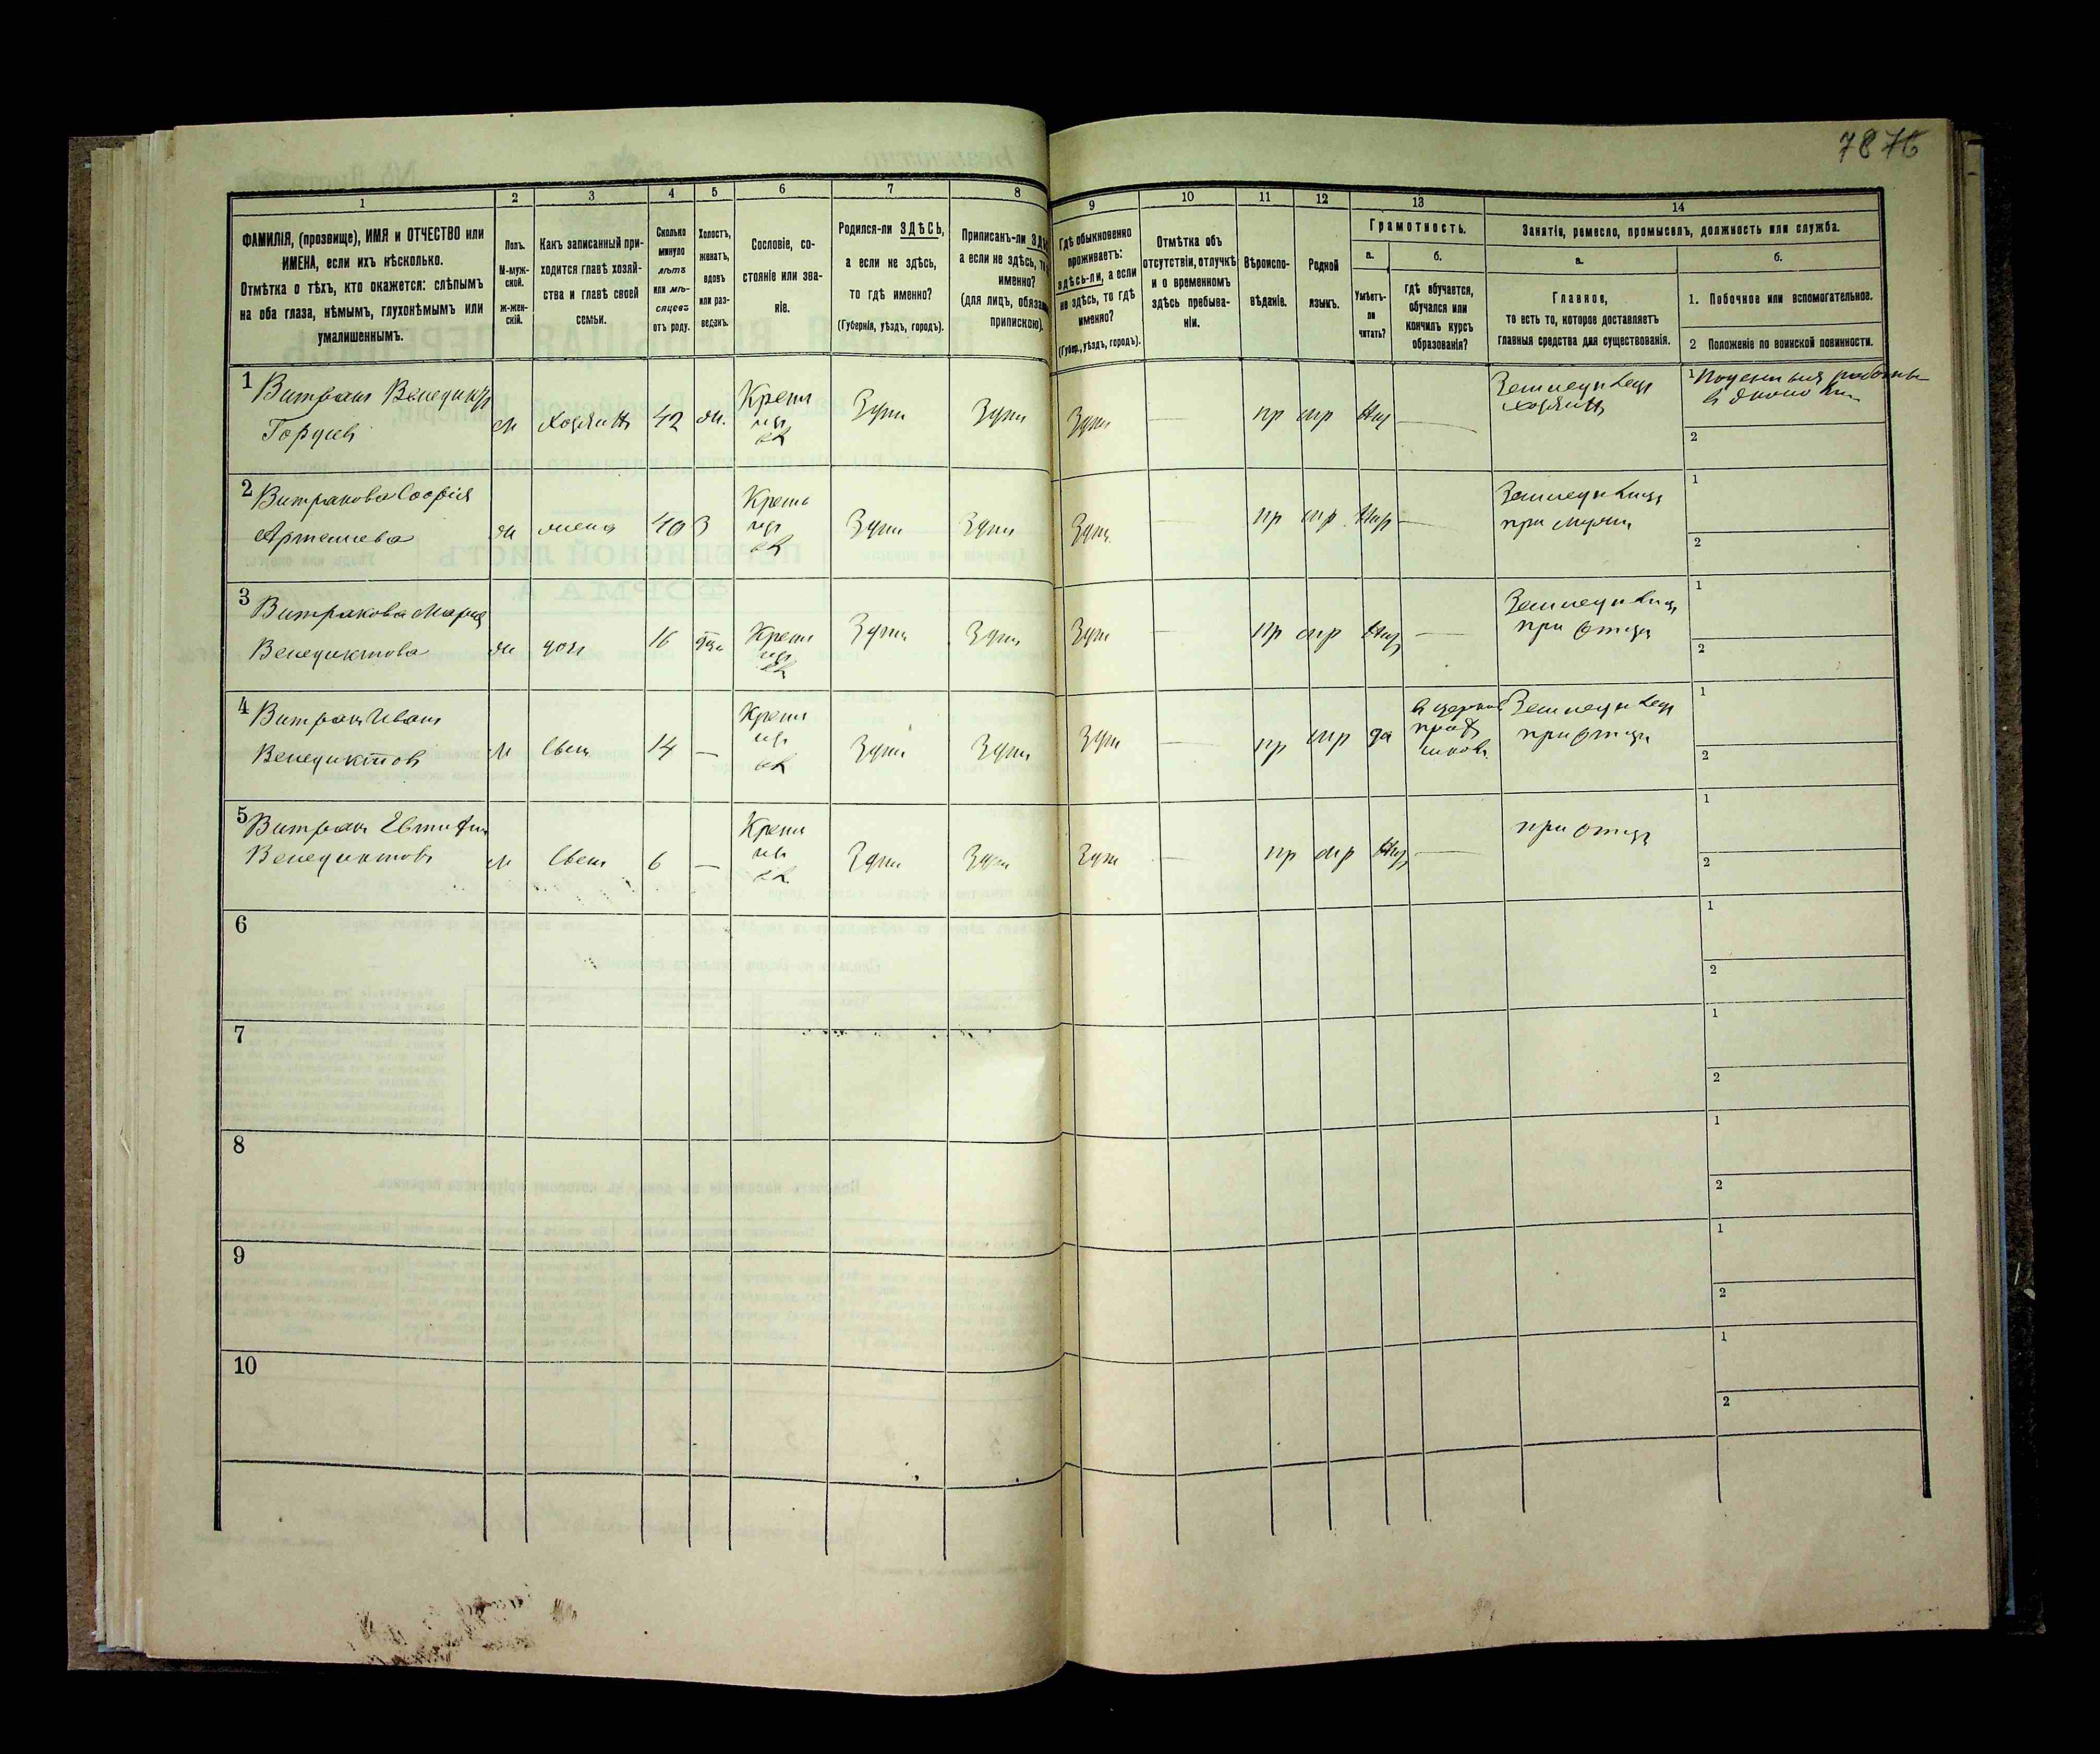 7876
1
2
3
4
5
6
7
8
9
10
11
12
13
14
ФАМИЛІЯ, (прозвище), ИМЯ и ОТЧЕСТВО или
ИМЕНА, если ихъ нѣсколько.
Отмѣтка о тѣхъ, кто окажется: слѣпымъ
на оба глаза, нѣмымъ, глухонѣмымъ или
умалишеннымъ.
Полъ.
М-муж-
ской.
ж-жен-
скій.
Какъ записанный при-
ходится главѣ хозяй-
ства и главѣ своей
семьи.
Сколько
минуло
лѣтъ
или мѣ-
сяцевъ
отъ роду.
Холостъ,
женатъ,
вдовъ
или раз-
веденъ.
Сословіе, со-
стояніе или зва-
ніе.
Родился-ли ЗДѢСЬ,
а если не здѣсь,
то гдѣ именно?
(Губернія, уѣздъ, городъ).
Приписанъ-ли
а если не здѣсь,
именно?
(для лицъ,
припискою).
Гдѣ обыкновенно
проживаетъ:
здѣсь-ли, а если
не здѣсь, то гдѣ
именно?
(Губер., уѣздъ, городъ).
Отмѣтка объ
отсутствіи, отлучкѣ
и о временномъ
здѣсь пребыва-
ніи.
Вѣроиспо-
вѣданіе.
Родной
языкъ.
Грамотность.
а.
Умѣетъ-
ли
читать?
б.
гдѣ обучается,
обучался или
кончилъ курсъ
образованія?
Занятіе, ремесло, промыселъ, должность или служба.
а.
Главное,
то есть то, которое доставляетъ
главныя средства для существованія.
б.
1. Побочное или вспомогательное.
2 Положеніе по воинской повинности.
1 Витрак Венедикт
Гордіев
м хозяин 42 ж. Крест из Здеси Здеси Здеси — пр мр Нет — хозяин
1
2
2 Витракова Софія
Артемова
ж жена 40 З Крест из Здеси Здеси Здеси — пр мр Нет — при мужи
1
2
3 Витракова Мария
Венедиктова
ж доч 16 Крест из Здеси Здеси Здеси — пр мр Нет — при отце
1
2
4 Витрак Иван
Венедиктов
м Сын 14 — Крест из Здеси Здеси Здеси — пр мр да при отце
1
2
5 Витрак Евтифи
Венедиктов
м Сын 6 — Крест из Здеси Здеси Здеси — пр мр Нет — при отце
1
2
6
1
2
7
1
2
8
1
2
9
1
2
10
1
2